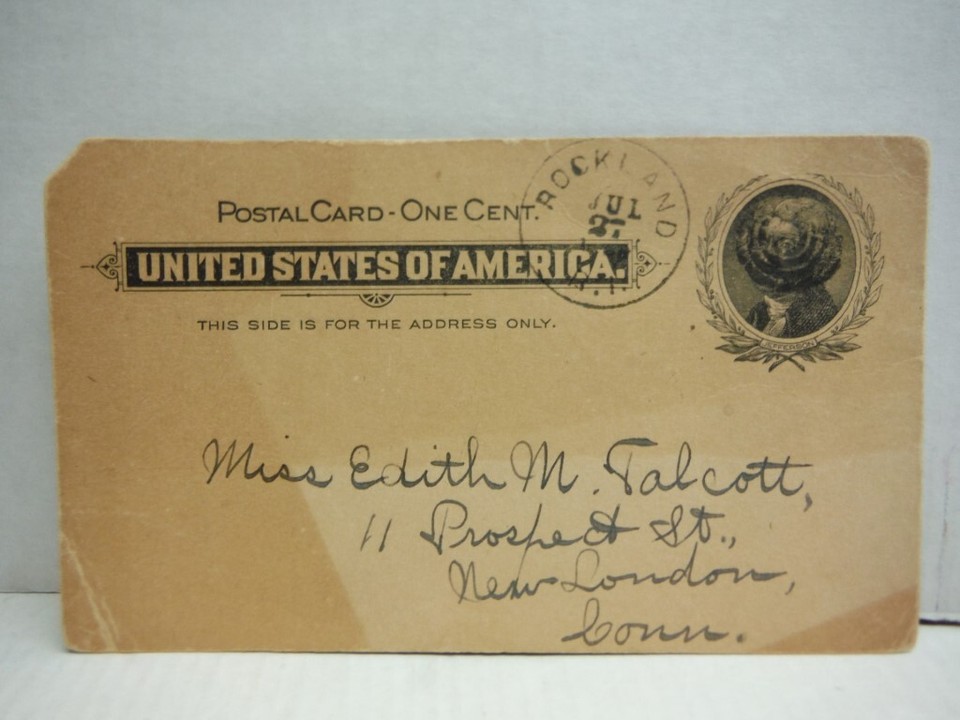 POSTAL CARD - ONE CENT.
UNITED STATES OF AMERICA.
THIS SIDE IS FOR THE ADDRESS ONLY.
ROCKLAND
JUL
27
R.I.
JEFFERSON
Miss Edith M. Talcott,
11 Prospect St.,
New London,
Conn.